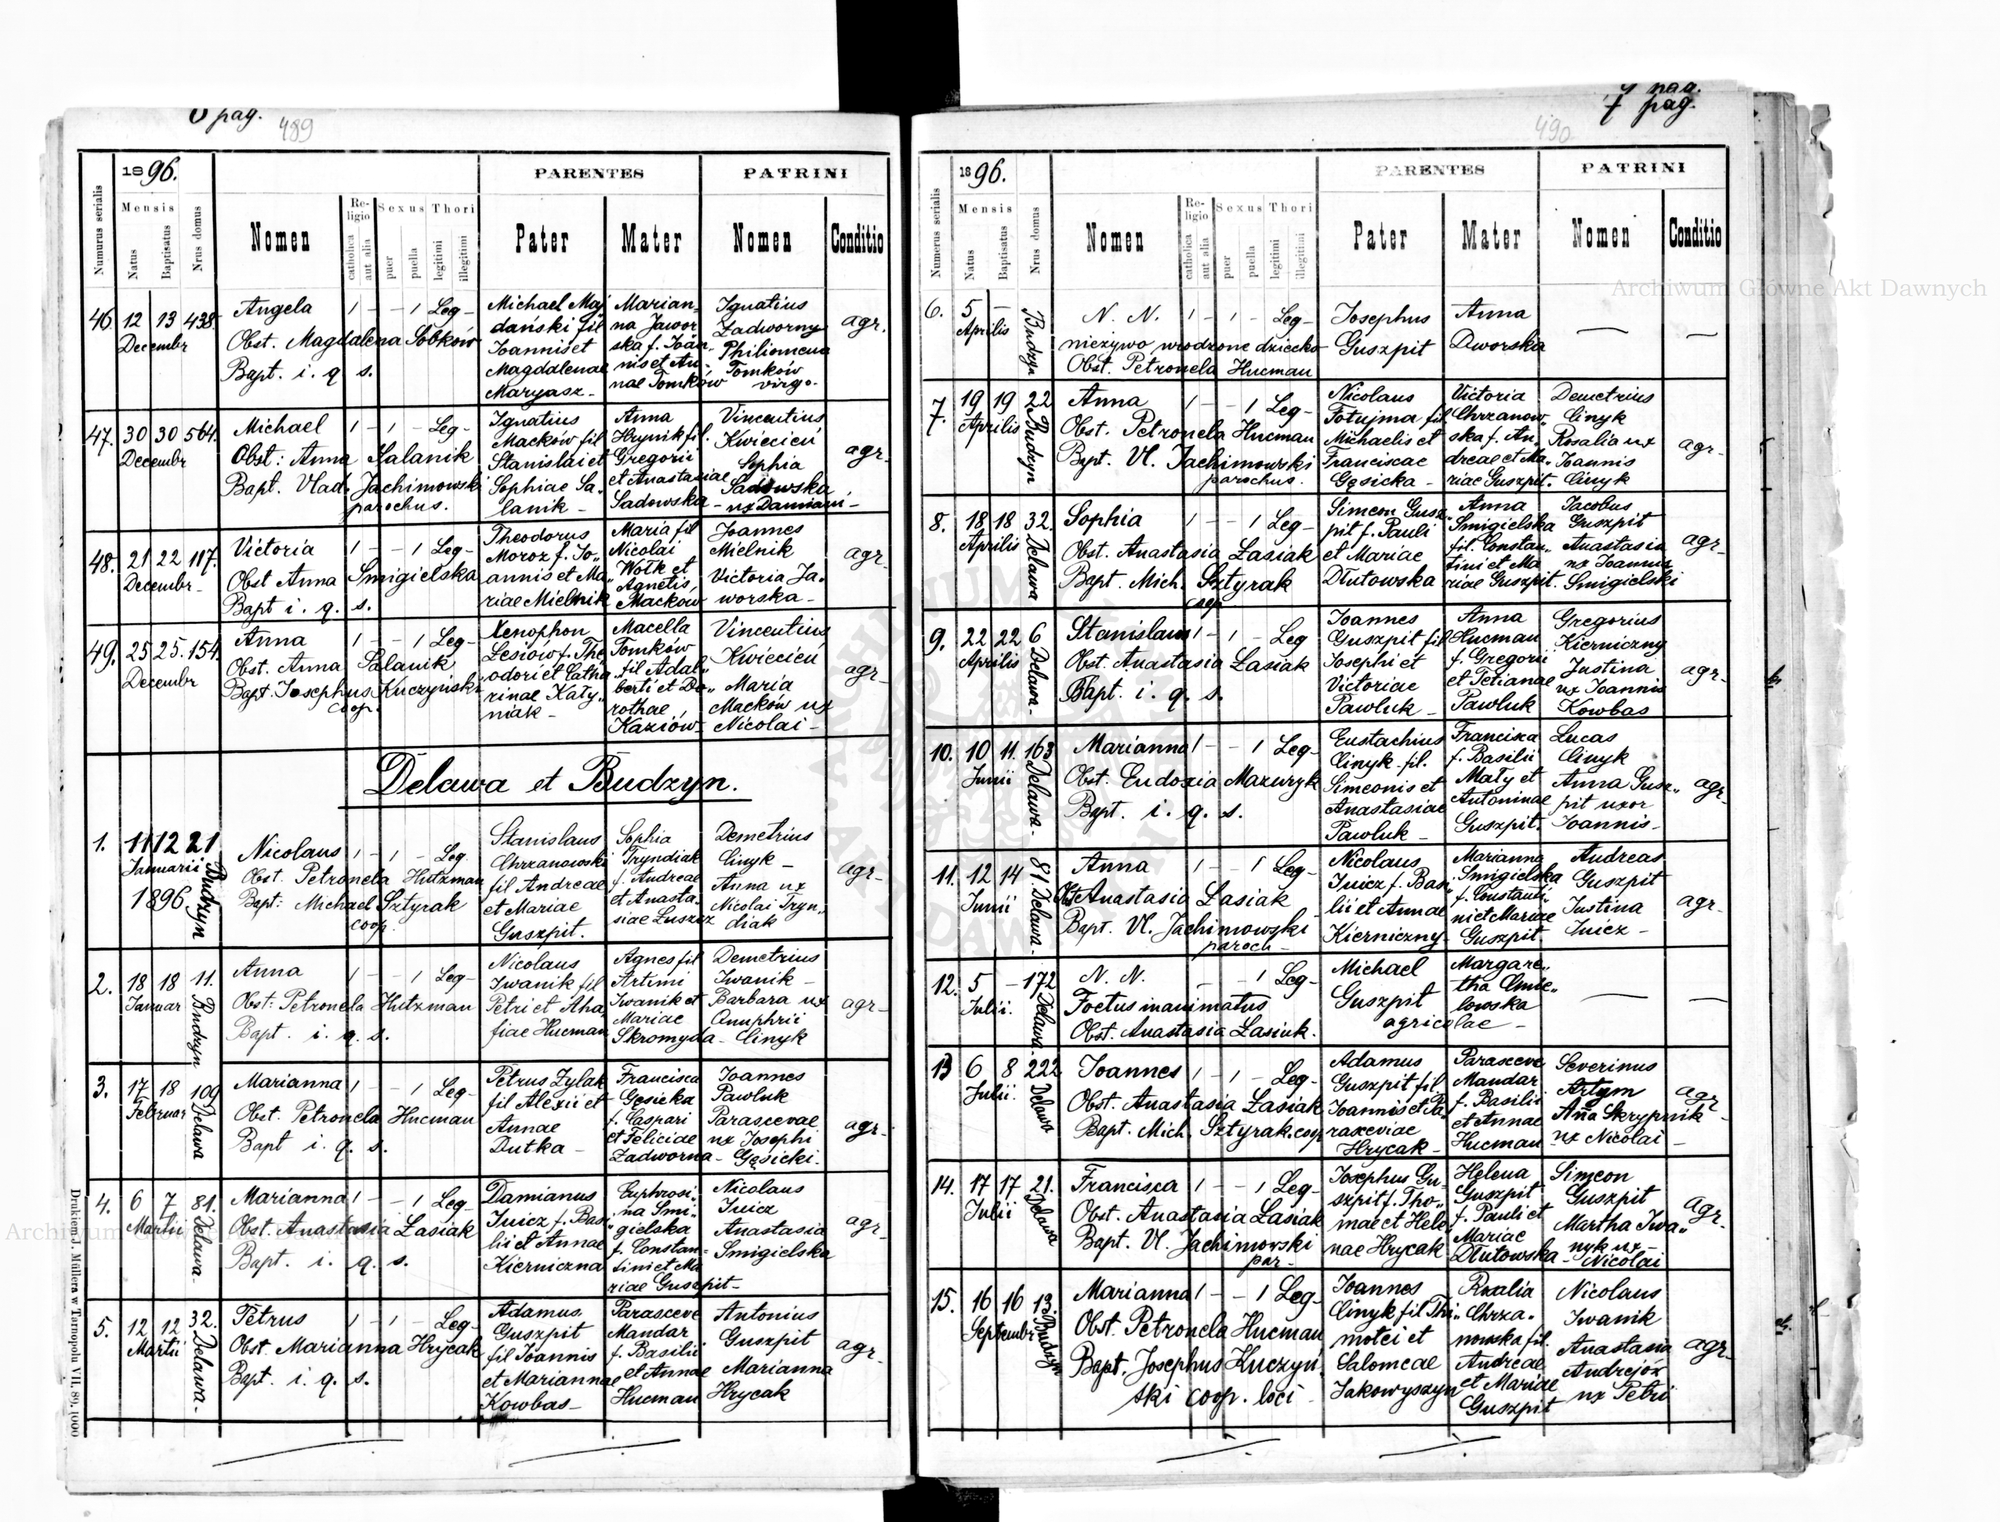 6 pag.
489
1896.
PARENTES
PATRINI
Numurus serialis
Mensis
Natus
Baptisatus
Nrus domus
Nomen
Religio
catholica
aut alia
Sexus
puer
puella
Thori
legitimi
illegitimi
Pater
Mater
Nomen
Conditio
46. 12 13 438.
Decembr
Angela 1 – – 1 Leg-
Obst. Magdalena Sobków
Bapt. i. q. s.
Michael Maj
danski fil
Joannis et
Magdalenae
Maryasz -
Marian-
na Jawor
ska f. Joan-
nis et An-
nae Tomków
Ignatius
Zadworny
Philiomena
Tomków
virgo.
agr.
47. 30 30 564.
Decembr
Michael 1 – 1 – Leg-
Obst: Anna Salanik
Bapt. Vlad. Jachimowski
parochus.
Ignatius
Mackow fil
Stanislai et
Sophiae Sa-
lanik -
Anna
Hrynik fil.
Gregorii
et Anastasiae
Sadowska
Vincentius
Kwiecień
Sophia
Sadowska
- ux Damiani -
agr-
48. 21 22 117.
Decembr-
Victoria 1 – – 1 Leg-
Obst Anna Smigielska
Bapt i. q. s.
Theodorus
Moroz f. Jo-
annis et Ma
riae Mielnik
Maria fil
Nicolai
Wołk et
Agnetis
Macków
Joannes
Mielnik
Victoria Ja-
worska -
agr-
49. 25 25. 154.
Decembr
Anna 1 – – 1 Leg-
Obst. Anna Salanik
Bapt. Josephus Kuczyński
coop.
Xenophon
Lesiów f. The
odori et Catha
rinae Katy-
niak -
Macella
Tomków
fil Adal-
berti et Do-
rothae
Kaziów -
Vincentius
Kwiecień
Maria
Macków ux
Nicolai -
agr-
Delawa et Budzyn.
1. 11 12 21
Januarii
1896.
Budzyn
Nicolaus 1 – 1 – Leg.
Obst. Petronela Hutzman
Bapt: Michael Sztyrak
coop.
Stanislaus
Chrzanowski
fil Andreae
et Mariae
Guszpit.
Sophia
Tryndiak
f. Andreae
et Anasta-
siae Luszcz
Demetrius
Cinyk -
Anna ux
Nicolai Tryn-
diak
agr-
2. 18 18 11.
Januar
Budzyn
Anna 1 – – 1 Leg-
Obst: Petronela Hutzman
Bapt. i. q. s.
Nicolaus
Iwanik fil
Petri et Aha,
fiae Hucman
Agnes fil
Artimi
Iwanik et
Mariae
Skromyda -
Demetrius
Iwanik -
Barbara ux
Onuphrii
Cinyk
agr-
3. 17 18 109
Februar
Delawa
Marianna 1 – – 1 Leg-
Obst. Petronela Hucman
Bapt i. q. s.
Petrus Zylak
fil Alexii et
Annae
Dutka -
Francisca
Gęsicka
f. Caspari
et Feliciae
Zadworna -
Joannes
Pawluk
Parascevae
ux Josephi
Gęsicki.
agr-
4. 6 7 81.
Martii
Delawa-
Marianna 1 – – 1 Leg-
Obst Anastasia Łasiak
Bapt. i. q. s.
Damianus
Juicz f. Basi-
lii et Annae
Kierniczna
Euphrosi-
na Smi-
gielska
f. Constan-
tini et Ma
riae Guszpit-
Nicolaus
Juicz
Anastasia
Smigielska
agr-
5. 12 12 32.
Martii
Delawa-
Petrus 1 – 1 – Leg-
Obst Marianna Hrycak
Bapt. i. q. s.
Adamus
Guszpit
fil Joannis
et Mariannae
Kowbas -
Parasceve
Mandar
f. Basilii
et Annae
Hucman
Antonius
Guszpit
Marianna
Hrycak
agr-
Drukiem J. Müllera w Tarnopolu VII. 89. 1000
7 pag.
490
1896.
PARENTES
PATRINI
Numerus serialis
Mensis
Natus
Baptisatus
Nrus domus
Nomen
Religio
catholica
aut alia
Sexus
puer
puella
Thori
legitimi
illegitimi
Pater
Mater
Nomen
Conditio
6. 5 –
Aprilis
Budzyn
N. N. 1 – 1 – Leg-
nieżywo urodzone dziecko
Obst. Petronela Hucman
Josephus
Guszpit
Anna
Dworska
7. 19 19 22
Aprilis
Budzyn
Anna 1 – – 1 Leg-
Obst. Petronela Hucman
Bapt. Vl. Jachimowski
parochus.
Nicolaus
Fotujma fil
Michaelis et
Franciscae
Gęsicka -
Victoria
Chrzanow-
ska f. An-
dreae et Ma-
riae Guszpit.
Demetrius
Cinyk
Rosalia ux
Joannis
Cinyk
agr-
8. 18 18 32.
Aprilis
Delawa
Sophia 1 – – 1 Leg-
Obst. Anastasia Łasiak
Bapt. Mich. Sztyrak
coop
Simeon Gusz-
pit f. Pauli
et Mariae
Dłutowska
Anna
Smigielska
fil. Constan-
tini et Ma
riae Guszpit.
Jacobus
Guszpit
Anastasia
ux Joannis
Smigielski
agr-
9. 22 22 6
Aprilis
Delawa-
Stanislaus 1 – 1 – Leg
Obst. Anastasia Łasiak
Bapt. i. q. s.
Joannes
Guszpit fil
Josephi et
Victoriae
Pawluk -
Anna
Hucman
f. Gregorii
et Tetianae
Pawluk
Gregorius
Kierniczny
Justina
ux Joannis
Kowbas
agr-
10. 10 11. 163
Junii
Delawa-
Marianna 1 – – 1 Leg-
Obst. Eudoxia Mazuryk
Bapt. i. q. s.
Eustachius
Cinyk fil.
Simeonis et
Anastasiae
Pawluk -
Francisca
f. Basilii
Mały et
Antoninae
Guszpit.
Lucas
Cinyk
Anna Gusz-
pit uxor
Joannis-
agr-
11. 12 14 81.
Junii
Delawa-
Anna 1 – – 1 Leg-
Obst Anastasia Łasiak
Bapt. Vl. Jachimowski
paroch -
Nicolaus
Juicz f. Basi-
lii et Annae
Kierniczny-
Marianna
Smigielska
f. Constanti-
ni et Mariae
Guszpit.
Andreas
Guszpit
Justina
Juicz -
agr-
12. 5 – 172
Julii.
Delawa-
N. N. – 1 Leg-
Foetus inanimatus
Obst. Anastasia Łasiuk.
Michael
Guszpit
agricolae -
Margare-
tha Chmie-
lowska
13 6 8 222
Julii.
Delawa
Joannes 1 – 1 – Leg-
Obst. Anastasia Łasiak
Bapt. Mich. Sztyrak. coop
Adamus
Guszpit fil
Joannis et Pa
rasceviae
Hrycak -
Parasceve
Mandar
f. Basilii
et Annae
Hucman
Severinus
Artym
Ańa Skrypnik
ux Nicolai -
agr-
14. 17 17 21.
Julii
Delawa
Francisca 1 – – 1 Leg-
Obst. Anastasia Łasiak
Bapt. Vl. Jachimowski
par-
Josephus Gu-
szpit f. Tho-
mae et Hele
nae Hrycak
Helena
Guszpit
f. Pauli et
Mariae
Dłutowska -
Simeon
Guszpit
Martha Iwa-
nyk ux
Nicolai
agr-
15. 16 16 13.
Septembr
Budzyn
Marianna 1 – – 1 Leg-
Obst. Petronela Hucman
Bapt. Josephus Kuczyń
ski coop. loci -
Joannes
Cinyk fil Thi-
motei et
Salomeae
Jakowyszyn
Rozalia
Chrza-
nowska fil.
Andreae
et Mariae
Guszpit
Nicolaus
Iwanik
Anastasia
Andrejów
ux Petri
agr-
Archiwum Główne Akt Dawnych